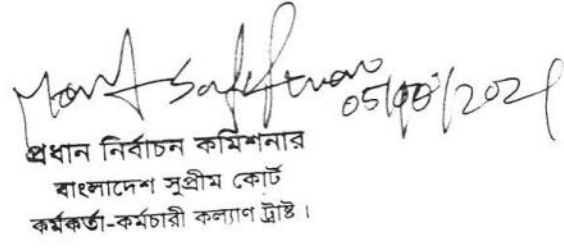 05/08/2021
প্রধান নির্বাচন কমিশনার
বাংলাদেশ সুপ্রীম কোর্ট
কর্মকর্তা-কর্মচারী কল্যাণ ট্রাষ্ট।